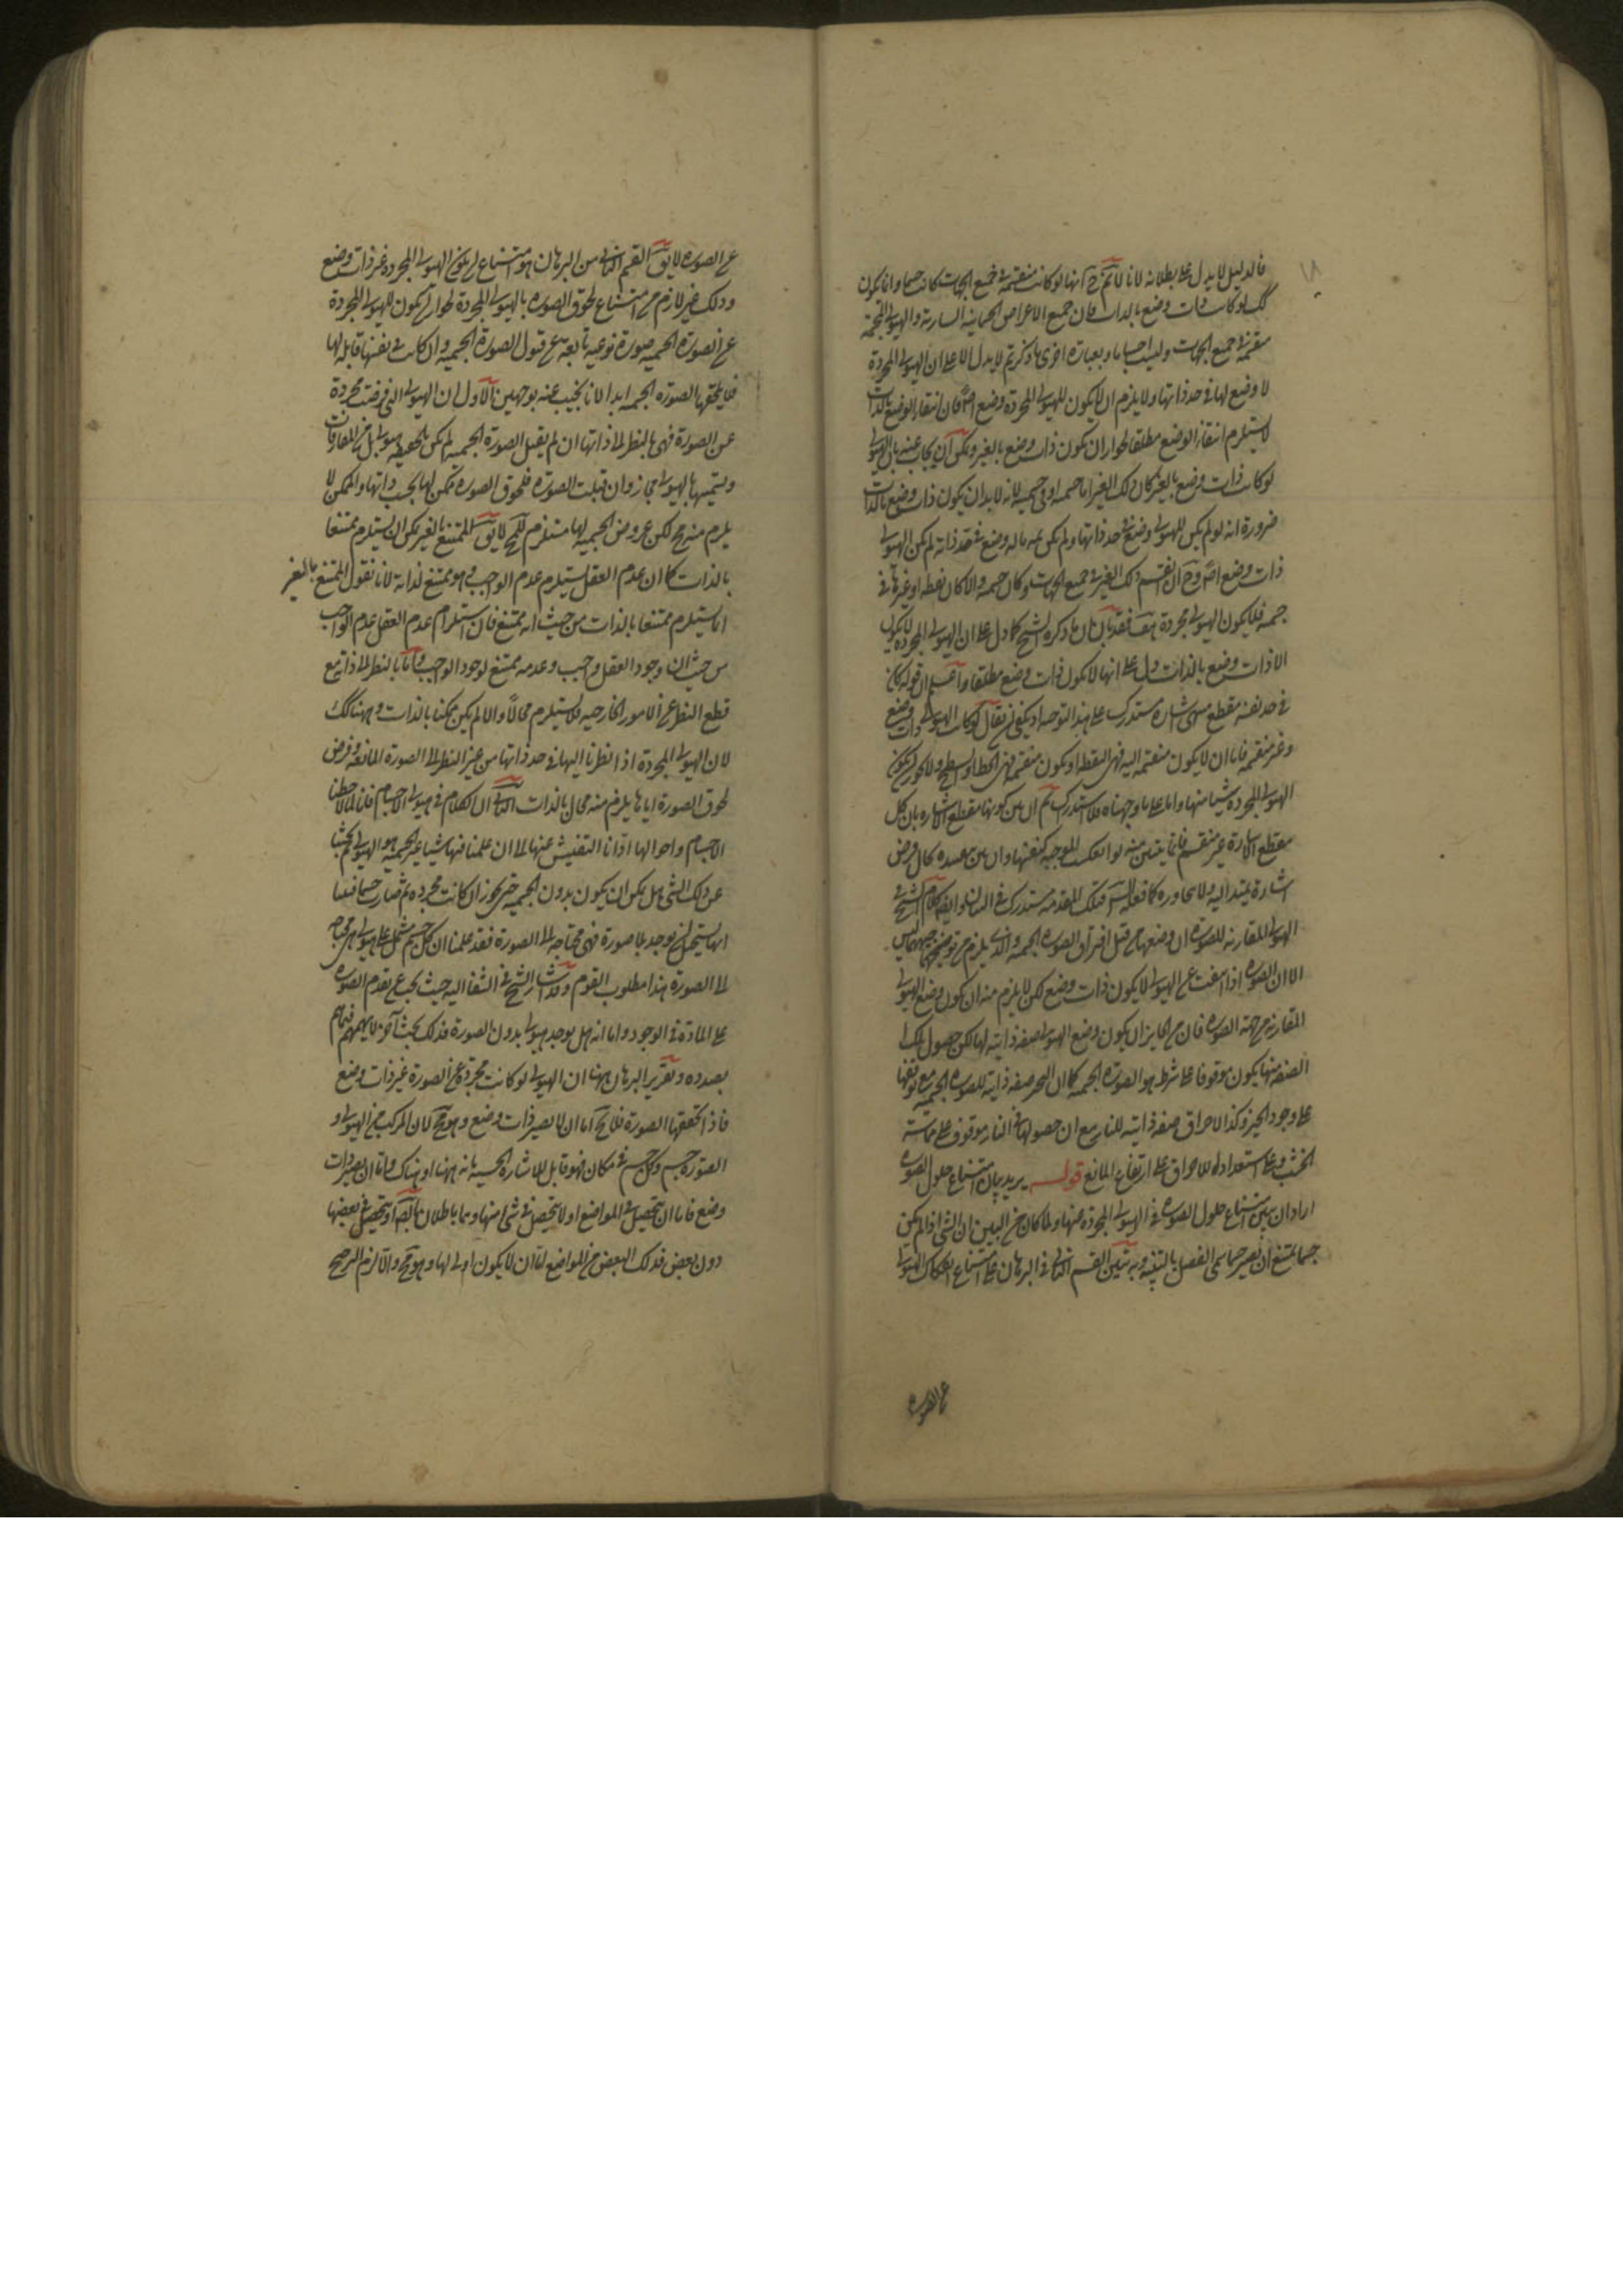 فالدليل لا يدل على بطلانه لانا لانم ح انها لو كانت منقسمة في جميع الجهات كانت جسما وانما يكون
كك لو كانت ذات وضع بالذات فان جميع الاعراض الجسمانية السارية والهيولى المجسمة
منقسمة في جميع الجهات وليست اجساما وبعبارة اخرى ما ذكرتم لا يدل الا على ان الهيولى المجردة
لا وضع لها في حد ذاتها ولا يلزم ان لا يكون للهيولى المجردة وضع اصلا فان انتفاء الوضع بالذات
لا يستلزم انتفاء الوضع مطلقا لجواز ان يكون ذات وضع بالغير ويمكن ان يجاب عنه بان الهيولى
لو كانت ذات وضع بالغير كان ذلك الغير اما جسمية او في جسمية لانه لا بد ان يكون ذات وضع بالذات
ضرورة انه لو لم يكن للهيولى وضع في حد ذاتها ولم يكن غيرها له وضع في حد ذاته لم يكن الهيولى
ذات وضع اصلا وح ان انقسم ذلك الغير في جميع الجهات كان جسمية والا كان نقطة او غيرها في
جسمية فلا يكون الهيولى مجردة هف فقد بان ان ما ذكره الشيخ كما دل على ان الهيولى المجردة لا يكون
الا ذات وضع بالذات دل على انها لا يكون ذات وضع مطلقا واعلم ان قوله كان
في حد نفسه مقطع اشارة مستدرك على هذا التوجيه اذ يكفي ان يقال لو كانت الهيولى ذات وضع
وغير منقسمة فاما ان لا يكون منقسمة اليه فهي النقطة او يكون منقسمة فهي الخط او السطح ولا يجوز ان يكون
الهيولى المجردة شيئا منها واما على ما وجهناه فلا استدراك ثم ان بين كونها مقطع الاشارة بان كل
مقطع اشارة غير منقسم فانما يتبين منه لو انعكست الموجبة كنفسها وان بين بعده كان فرض
اشارة يمتد اليه ولا يتجاوزه كما فعله الشارح فتلك المقدمة مستدركة في البيان وايضا كلام الشيخ في
الهيولى المقارنة للصورة ان وضعها من قبل اقتران الصورة الجسمية والذي يلزم من توضيحهما ليس
الا ان الصورة اذا انتفت عن الهيولى لا يكون ذات وضع لكن لا يلزم منه ان يكون وضع الهيولى
المقارنة من جهة الصورة فان من الجائز ان يكون وضع الهيولى صفة ذاتية لها لكن حصول تلك
الصفة منها يكون موقوفا على شرط هو الصورة الجسمية كما ان التحيز صفة ذاتية للصورة الجسمية مع توقفها
على وجود الحيز وكذا الاحراق صفة ذاتية للنار مع ان حصولها في النار موقوف على مماسة
الخشب وعلى استعداده للاحراق على ارتفاع المانع قوله يريد بيان امتناع حلول الصورة
اراد ان يبين امتناع حلول الصورة في الهيولى المجردة عنها ولما كان من البين ان الشئ اذا لم يكن
جسما يمتنع ان يصير جسما سمى الفصل بالتنبيه وبه يتبين القسم الثاني في البرهان على امتناع انفكاك الهيولى
عن الصورة
عن الصورة لا يق القسم الثاني من البرهان هو امتناع ان يكون الهيولى المجردة غير ذات وضع
وذلك غير لازم من امتناع لحوق الصورة بالهيولى المجردة لجواز ان يكون للهيولى المجردة
عن الصورة الجسمية صورة نوعية تابعة عن قبول الصورة الجسمية وان كانت في نفسها قابلة لها
فلا يلحقها الصورة الجسمية ابدا لانا نجيب عنه بوجهين الاول ان الهيولى التي فرضت مجردة
عن الصورة فهي بالنظر الى ذاتها ان لم يقبل الصورة الجسمية لم يكن بالحقيقة هيولى بل من المفارقات
وتسميتها بالهيولى مجاز وان قبلت الصورة فلحوق الصورة ممكن لها بحسب ذاتها والممكن لا
يلزم منه مح لكن عروض الجسمية لها مستلزم للمح لا يق الممتنع بالغير يمكن ان يستلزم ممتنعا
بالذات كما ان عدم العقل يستلزم عدم الواجب وهو ممتنع لذاته لانا نقول الممتنع بالغير
انما يستلزم ممتنعا بالذات من حيث انه ممتنع فان استلزام عدم العقل عدم الواجب
من حيث ان وجود العقل واجب وعدمه ممتنع لوجود الواجب واما بالنظر الى ذاته مع
قطع النظر عن الامور الخارجية فلا يستلزم محالا والا لم يكن ممكنا بالذات وههنا كك
لان الهيولى المجردة اذا نظرنا اليها في حد ذاتها من غير النظر الى الصورة المانعة وفرض
لحوق الصورة اياها يلزم منه محال بالذات الثاني ان الكلام في هيولى الاجسام فانا لما لاحظنا
الاجسام واحوالها ادانا التفتيش عنها الى ان علمنا فيها شيئا غير الجسمية هو الهيولى ثم بحثنا
عن ذلك الشئ هل يمكن ان يكون بدون الجسمية حتى يجوز ان كانت مجردة ثم صارت جسما فبينا
انها يستحيل ان يوجد بلا صورة فهي محتاجة الى الصورة فقد علمنا ان كل جسم مشتمل على هيولى هي محتاجة
الى الصورة هذا مطلوب القوم وقد اشار الشيخ في الشفا اليه حيث بحث عن تقدم الصورة
على المادة في الوجود واما انه هل يوجد هيولى بدون الصورة فذلك بحث آخر لا يهمهم فيما هم
بصدده وتقرير البرهان ههنا ان الهيولى لو كانت مجردة عن الصورة غير ذات وضع
فاذا لحقتها الصورة فلا يخ اما ان لا يصير ذات وضع وهو مح لان المركب من الهيولى و
الصورة جسم وكل جسم في مكان فهو قابل للاشارة الحسية بانه ههنا او هناك واما ان يصير ذات
وضع فاما ان يتحصل في المواضع او لا يتحصل في شئ منها وهما باطلان بالبديهة او يتحصل في بعضها
دون بعض فذلك البعض من المواضع اما ان لا يكون اولى لها وهو مح والا لزم الترجيح